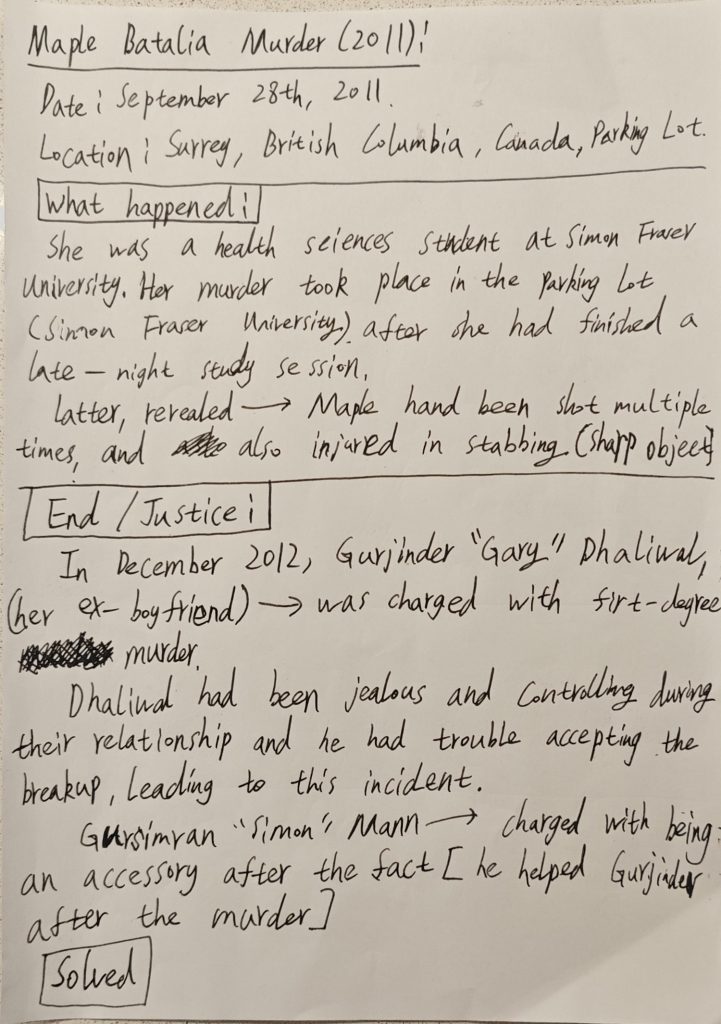 Maple Batalia Murder (2011):
Date: September 28th, 2011.
Location: Surrey, British Columbia, Canada, Parking Lot.
What happened:
She was a health sciences student at Simon Fraser
University. Her murder took place in the Parking Lot
(Simon Fraser University) after she had finished a
late-night study session.
Latter, revealed → Maple hand been shot multiple
times, and also injured in stabbing (sharp object)
End / Justice:
In December 2012, Gurjinder "Gary" Dhaliwal,
(her ex-boyfriend) → was charged with firt-degree
murder.
Dhaliwal had been jealous and controlling during
their relationship and he had trouble accepting the
breakup, leading to this incident.
Gursimran "Simon" Mann → charged with being
an accessory after the fact [he helped Gurjinder
after the murder]
Solved